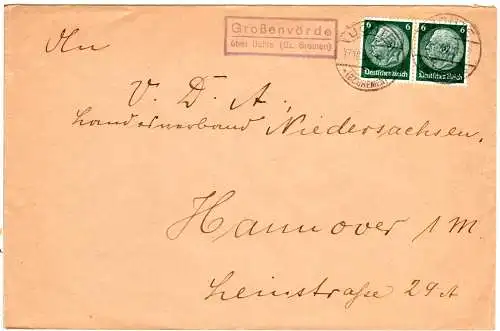 Großenvörde
über Uchte (Bz. Bremen)
6 6
Deutsches Reich Deutsches Reich
(BZ. BREMEN)
An
V. D. A.,
Landesverband Niedersachsen.
Hannover 1 M
Leinstraße 29 A